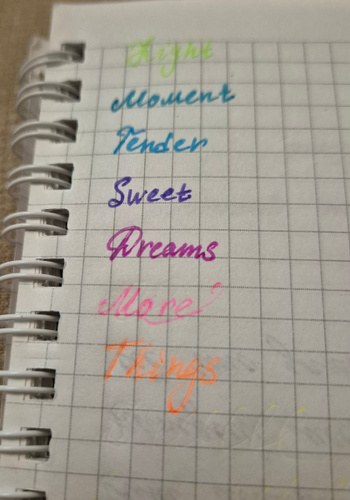 Light
Moment
Tender
Sweet
Dreams
More
Things